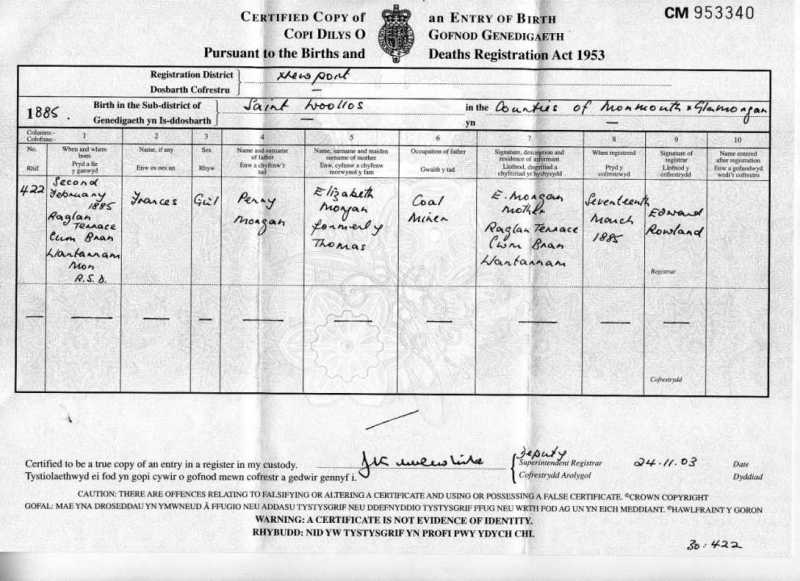 CERTIFIED COPY of an ENTRY OF BIRTH
CM 953340
COPI DILYS O GOFNOD GENEDIGAETH
Pursuant to the Births and Deaths Registration Act 1953
Registration District Newport
Dosbarth Cofrestru —
1885. Birth in the Sub-district of Saint Woollos in the Counties of Monmouth & Glamorgan
Genedigaeth yn Is-ddosbarth — yn —
Columns:- 1 2 3 4 5 6 7 8 9 10
Colofnau:-
No.
Rhif
When and where born
Pryd a lle y ganwyd
Name, if any
Enw os oes un
Sex
Rhyw
Name and surname of father
Enw a chyfenw'r tad
Name, surname and maiden surname of mother
Enw, cyfenw a chyfenw morwynol y fam
Occupation of father
Gwaith y tad
Signature, description and residence of informant
Llofnod, disgrifiad a chyfeiriad yr hysbysydd
When registered
Pryd y cofrestrwyd
Signature of registrar
Llofnod y cofrestrydd
Name entered after registration
Enw a gofnodwyd wedi'r cofrestru
422
Second
February
1885
Raglan
Terrace
Cwm Bran
Llantarnam
Mon
R.S.D.
Frances
Girl
Perry
Morgan
Elizabeth
Morgan
formerly
Thomas
Coal
Miner
E. Morgan
Mother
Raglan Terrace
Cwm Bran
Llantarnam
Seventeenth
March
1885
Edward
Rowland
Registrar
Cofrestrydd
Certified to be a true copy of an entry in a register in my custody.
Tystiolaethwyd ei fod yn gopi cywir o gofnod mewn cofrestr a gedwir gennyf i.
Deputy
Superintendent Registrar
Cofrestrydd Arolygol
24.11.03
Date
Dyddiad
CAUTION: THERE ARE OFFENCES RELATING TO FALSIFYING OR ALTERING A CERTIFICATE AND USING OR POSSESSING A FALSE CERTIFICATE. ©CROWN COPYRIGHT
GOFAL: MAE YNA DROSEDDAU YN YMWNEUD Â FFUGIO NEU ADDASU TYSTYSGRIF NEU DDEFNYDDIO TYSTYSGRIF FFUG NEU WRTH FOD AG UN YN EICH MEDDIANT. ©HAWLFRAINT Y GORON
WARNING: A CERTIFICATE IS NOT EVIDENCE OF IDENTITY.
RHYBUDD: NID YW TYSTYSGRIF YN PROFI PWY YDYCH CHI.
30:422